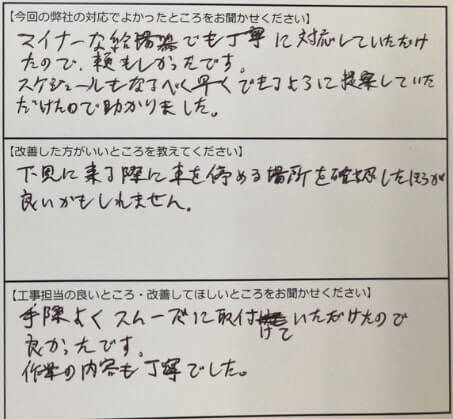 【今回の弊社の対応でよかったところをお聞かせください】
マイナーな給湯器でも丁寧に対応していただけ
たので、頼もしかったです。
スケジュールもなるべく早くできるように提案していた
だけたので助かりました。
【改善した方がいいところを教えてください】
下見に来る際に車を停める場所を確認したほうが
良いかもしれません。
【工事担当の良いところ・改善してほしいところをお聞かせください】
手際よくスムーズに取付けていただけたので
良かったです。
作業の内容も丁寧でした。